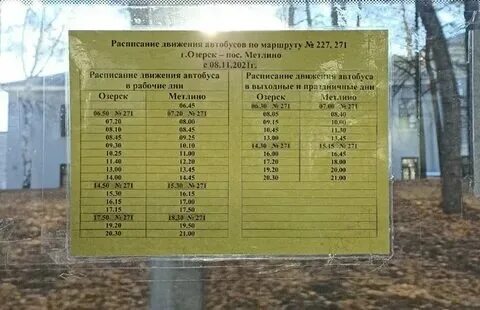 Расписание движения автобусов по маршруту № 227, 271
г.Озерск – пос. Метлино
с 08.11.2021г.
Расписание движения автобуса в рабочие дни
Озерск Метлино
06.45
06.50 № 271 07.20 № 271
07.20 08.00
08.10 08.45
08.45 09.25
09.30 10.10
10.25 11.00
11.40 12.20
13.00 13.45
14.00 14.45
14.50 № 271 15.30 № 271
15.30 16.15
16.15 17.00
17.15 17.50
17.50 № 271 18.30 № 271
19.20 19.50
20.30 21.00
Расписание движения автобуса в выходные и праздничные дни
Озерск Метлино
06.30 № 271 07.00 № 271
08.05 08.40
09.15 10.00
10.45 11.30
13.00 13.45
14.30 № 271 15.15 № 271
16.00 16.45
17.20 18.00
19.20 20.00
20.30 21.00